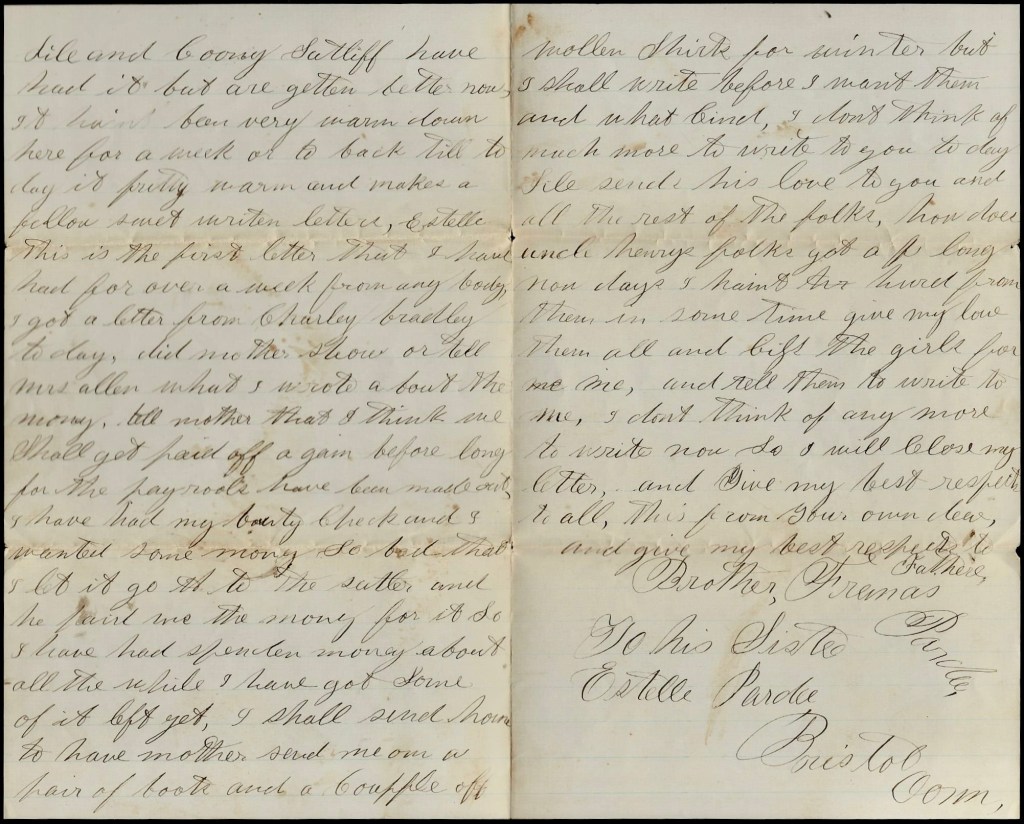 file and Coony Sutliff have
had it but are getten better now,
it hain't been very warm down
here for a week or to back till to
day it pritty warm and makes a
fellow swet writen letters, Estelle
this is the first letter that I have
had for over a week from any body,
I got a letter from Charley bradley
to day, did mother show or tell
mrs allen what I wrote a bout the
money, tell mother that I think we
Shall get paid off a gain before long
for the payrools have been made out,
I have had my bounty Check and I
wanted some money so bad that
I let it go to the sutler and
he paid me the money for it so
I have had spenden money about
all the while I have got some
of it left yet, I shall send home
to have mother send me on a
pair of boots and a Coupple off
wollen Shirts for winter but
I shall write before I want them
and what kind, I dont think of
much more to write to you to day
File sends his love to you and
all the rest of the folks, how does
uncle henrys folks got a long
now days I haint hurd from
them in some time give my love
them all and kiss the girls for
me me, and tell them to write to
me, I dont think of any more
to write now so I will Close my
letter, and Give my best respects
to all, this from your own dear,
and give my best respects to
Father,
Brother, Fremas
Pardee,
To his Sister
Estelle Pardee
Bristol
Conn,